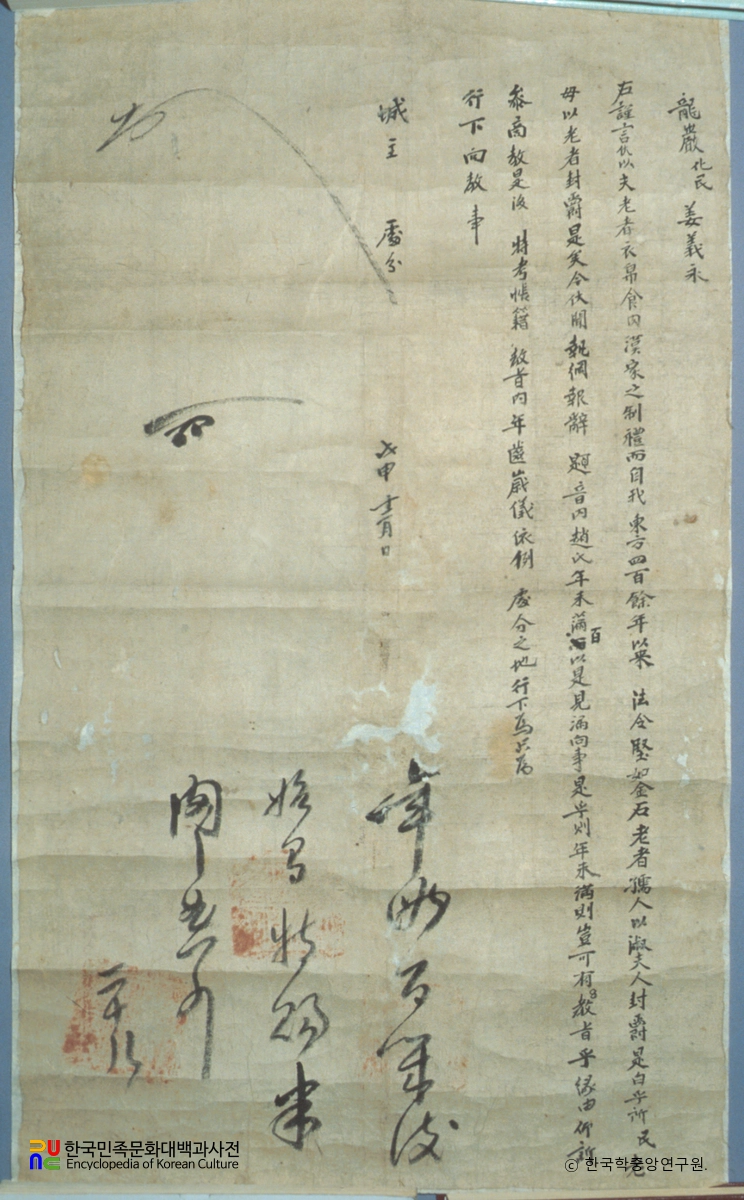 龍巖化民 姜義永
右謹言伏以夫老者衣帛食肉漢家之制禮而自我 東方四百餘年以來 法令堅如金石老者孺人以淑夫人封爵是白乎所民老
母以老者封爵是矣今伏聞 報備報辭 題音內趙氏年未滿百以是見漏向事是乎則年未滿則豈可有教旨乎緣由仰訴
參商教是後 特考帳籍 教旨內年齒歲儀依例 處分之地行下爲只爲
行下向教事
城主 處分
戊申 十二月 日
年為百第改
特賜米
한국민족문화대백과사전
Encyclopedia of Korean Culture
ⓒ 한국학중앙연구원.